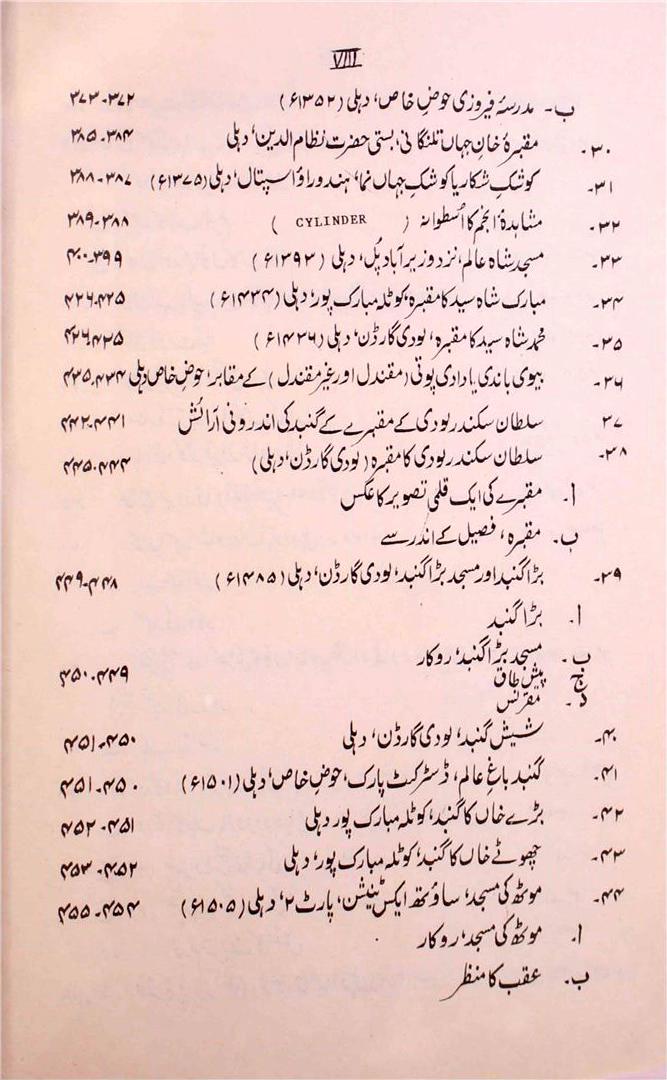 VIII
ب۔ مدرسۂ فیروزی حوضِ خاص، دہلی (۱۳۵۲ء) ۳۷۲-۳۷۳
۳۰۔ مقبرۂ خانِ جہاں تلنگانی، بستی حضرت نظام الدین، دہلی ۳۸۴-۳۸۵
۳۱۔ کوشکِ شکار یا کوشکِ جہاں نما، ہندو راؤ اسپتال، دہلی (۱۳۷۵ء) ۳۸۷-۳۸۸
۳۲۔ مشاہدۂ انجم کا اُسطوانہ (CYLINDER) ۳۸۸-۳۸۹
۳۳۔ مسجد شاہ عالم، نزد وزیر آباد پُل، دہلی (۱۳۹۲ء) ۳۹۹-۴۰۰
۳۴۔ مبارک شاہ سید کا مقبرہ، کوٹلہ مبارک پور، دہلی (۱۴۳۴ء) ۴۲۵-۴۲۶
۳۵۔ محمد شاہ سید کا مقبرہ، لودی گارڈن، دہلی (۱۴۳۶ء) ۴۲۵-۴۲۶
۳۶۔ بیوی باندی یا دادی پوتی (مقندل اور غیر مقندل) کے مقابر، حوضِ خاص دہلی ۴۳۴-۴۳۵
۳۷ سلطان سکندر لودی کے مقبرے کے گنبد کی اندرونی آرائش ۴۴۱-۴۴۲
۳۸۔ سلطان سکندر لودی کا مقبرہ (لودی گارڈن، دہلی) ۴۴۴-۴۴۵
ا۔ مقبرے کی ایک قلمی تصویر کا عکس
ب۔ مقبرہ، فصیل کے اندر سے
۳۹۔ بڑا گنبد اور مسجد بڑا گنبد، لودی گارڈن، دہلی (۱۴۸۵ء) ۴۴۸-۴۴۹
ا۔ بڑا گنبد
ب۔ مسجد بڑا گنبد، روکار
ج پیش طاق ۴۴۹-۴۵۰
د۔ مقرنس
۴۰۔ شیش گنبد، لودی گارڈن، دہلی ۴۵۰-۴۵۱
۴۱۔ گنبد باغِ عالم، ڈسٹرکٹ پارک، حوضِ خاص، دہلی (۱۵۰۱ء) ۴۵۰-۴۵۱
۴۲۔ بڑے خاں کا گنبد، کوٹلہ مبارک پور دہلی ۴۵۱-۴۵۲
۴۳۔ چھوٹے خاں کا گنبد، کوٹلہ مبارک پور، دہلی ۴۵۲-۴۵۳
۴۴۔ موٹھ کی مسجد، ساؤتھ ایکسٹینشن، پارٹ ۲، دہلی (۱۵۰۵ء) ۴۵۴-۴۵۵
ا۔ موٹھ کی مسجد، روکار
ب۔ عقب کا منظر